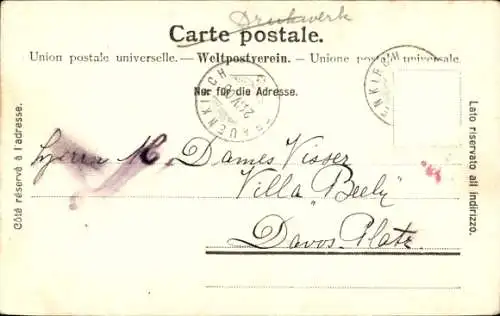 Drukwerk
Carte postale.
Union postale universelle. — Weltpostverein. — Unione postale universale.
Nur für die Adresse.
FRAUENKIRCH
Côté réservé à l'adresse.
Lato riservato all indirizzo.
M. Dames Visser
Villa „Beely"
Davos-Platz.